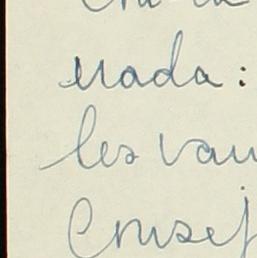 nada:
les van
Consej